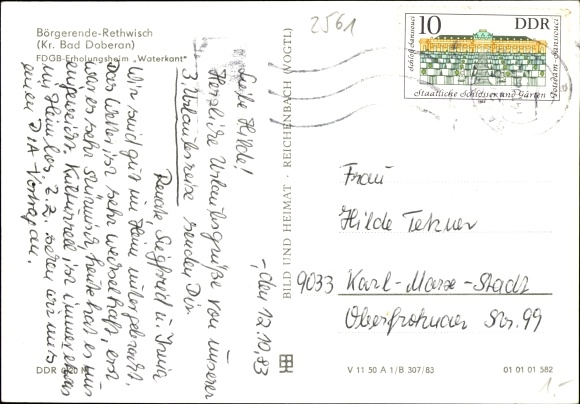 Börgerende-Rethwisch
(Kr. Bad Doberan)
FDGB-Erholungsheim „Waterkant"
2561
10 DDR
Schloß Sanssouci
Potsdam-Sanssouci
Staatliche Schlösser und Gärten
, den 12.10.83
Liebe Hilde!
Herzliche Urlaubsgrüße von unserer
3. Urlaubsreise senden Dir
Renate, Siegfried u. Irmia
Wir sind gut im Heim untergebracht.
Das Wetter ist sehr wechselhaft, erst
war es sehr stürmisch, heute hat es nur
Kulturell ist immer etwas
im Heim los, z.Z. sehen wir uns
einen DIA-Vortrag an.
BILD UND HEIMAT · REICHENBACH (VOGTL)
Frau
Hilde Tetzner
9033 Karl-Marx-Stadt
Oberfrohnaer Str. 99
DDR 0,20 M
V 11 50 A 1/B 307/83
01 01 01 582
1.-